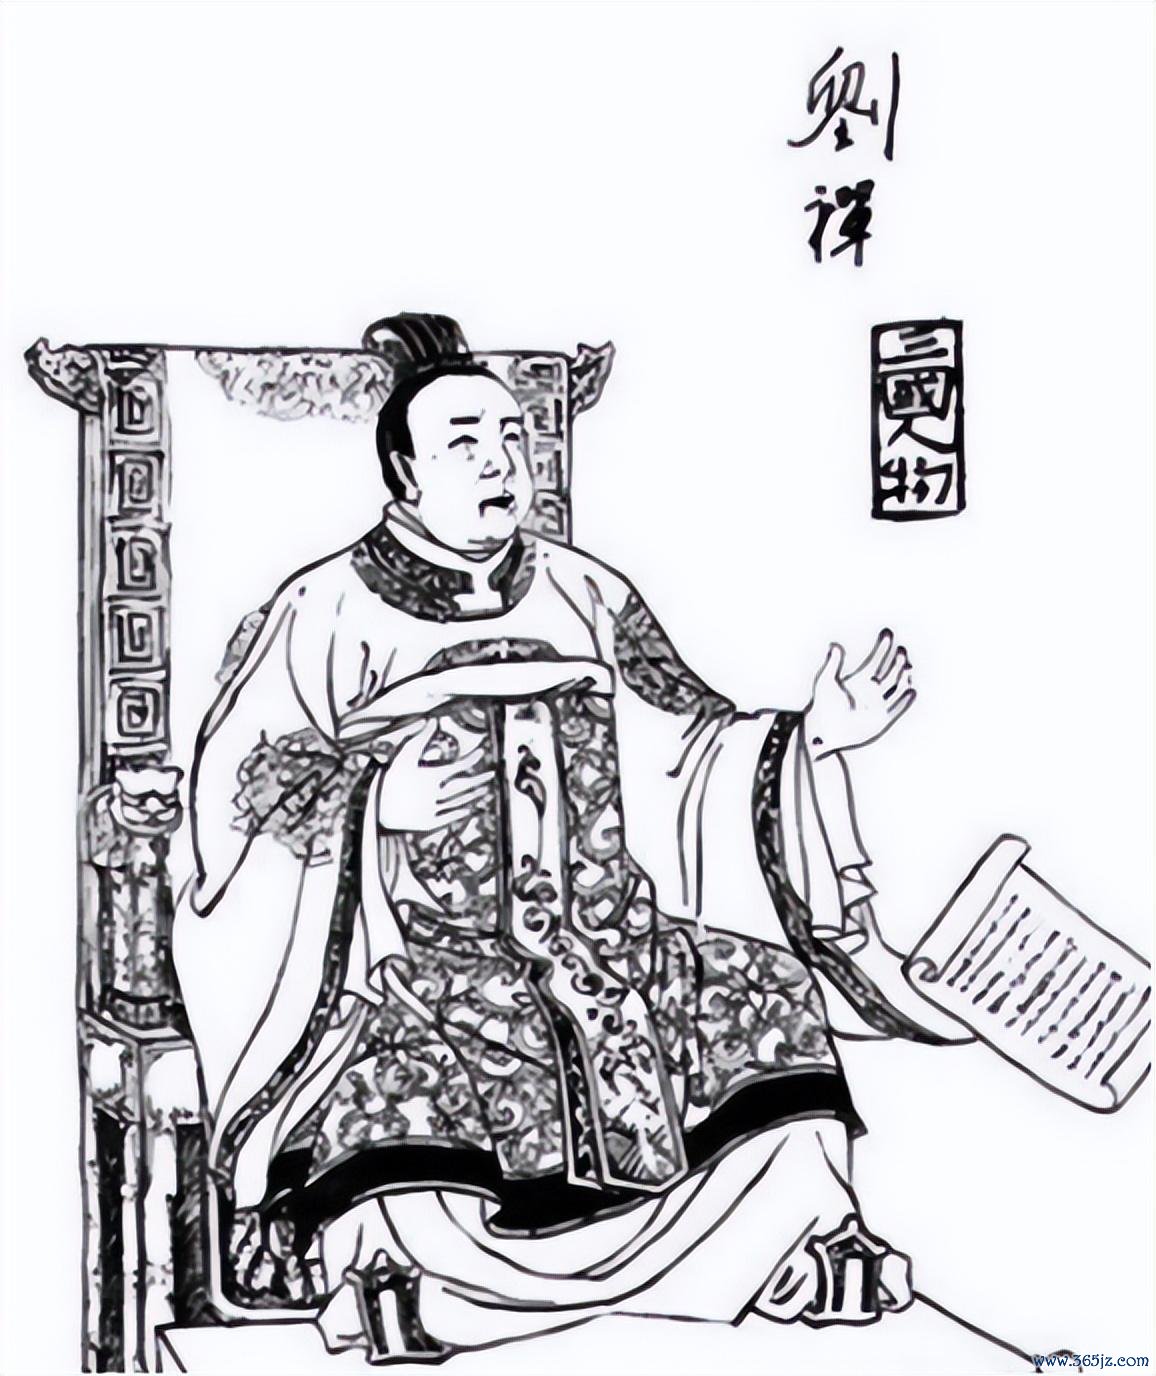 劉
禪
三國人物
www.365jz.com